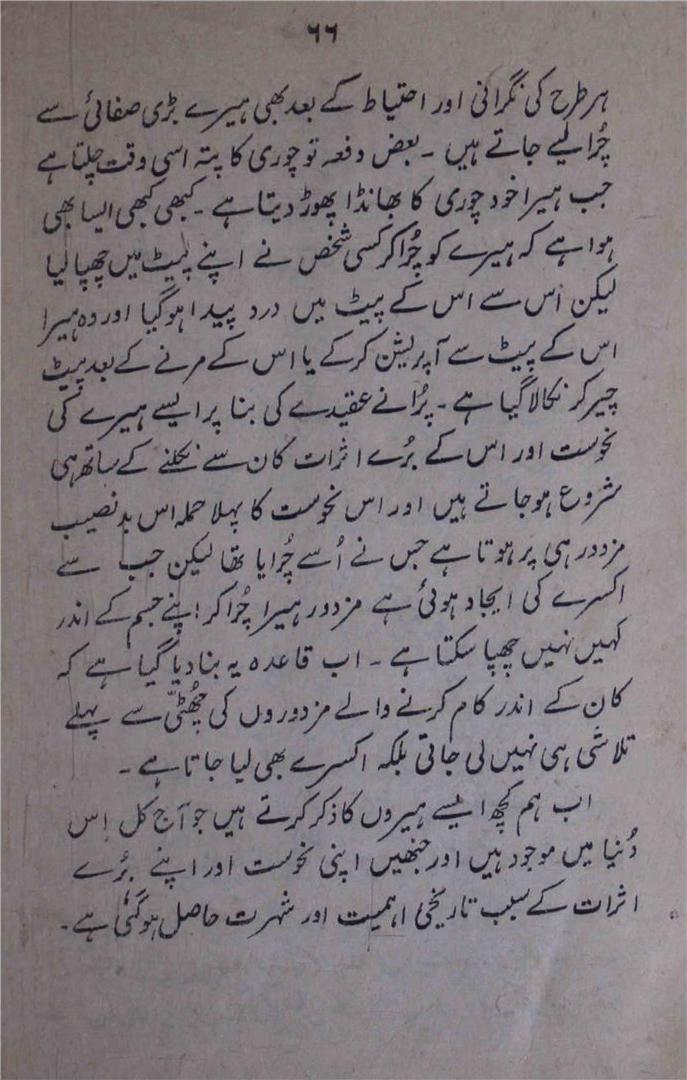 ۶۶
ہر طرح کی نگرانی اور احتیاط کے بعد بھی ہیرے بڑی صفائی سے
چُرا لیے جاتے ہیں ۔ بعض دفعہ تو چوری کا پتہ اسی وقت چلتا ہے
جب ہیرا خود چوری کا بھانڈا پھوڑ دیتا ہے ۔ کبھی کبھی ایسا بھی
ہوا ہے کہ ہیرے کو چُرا کر کسی شخص نے اپنے پیٹ میں چھپا لیا
لیکن اُس سے اس کے پیٹ میں درد پیدا ہو گیا اور وہ ہیرا
اس کے پیٹ سے آپریشن کر کے یا اس کے مرنے کے بعد پیٹ
چیر کر نکالا گیا ہے ۔ پُرانے عقیدے کی بنا پر ایسے ہیرے کی
نحوست اور اس کے بُرے اثرات کان سے نکلنے کے ساتھ ہی
شروع ہو جاتے ہیں اور اس نحوست کا پہلا حملہ اس بد نصیب
مزدور ہی پر ہوتا ہے جس نے اُسے چُرایا تھا لیکن جب سے
اکسرے کی ایجاد ہوئی ہے مزدور ہیرا چُرا کر اپنے جسم کے اندر
کہیں نہیں چھپا سکتا ہے ۔ اب قاعدہ یہ بنا دیا گیا ہے کہ
کان کے اندر کام کرنے والے مزدوروں کی چھُٹّی سے پہلے
تلاشی ہی نہیں لی جاتی بلکہ اکسرے بھی لیا جاتا ہے ۔
اب ہم کچھ ایسے ہیروں کا ذکر کرتے ہیں جو آج کل اِس
دُنیا میں موجود ہیں اور جنھیں اپنی نحوست اور اپنے بُرے
اثرات کے سبب تاریخی اہمیت اور شہرت حاصل ہو گئی ہے ۔